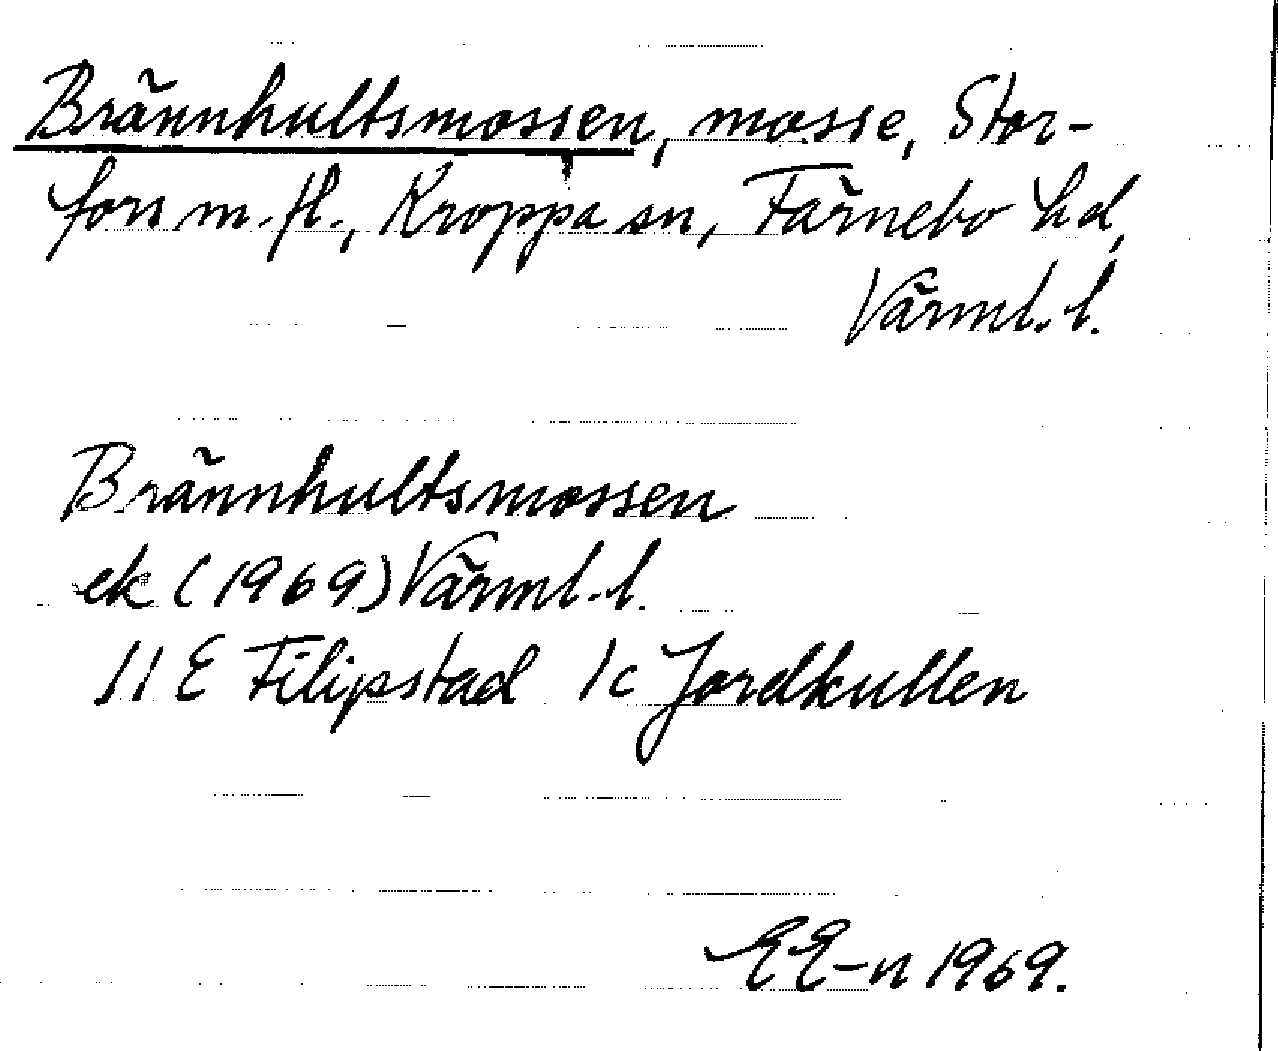 Brännhultsmossen, mosse, Stor-
fors m.fl., Kroppa sn, Färnebo hd,
Värml. l.
Brännhultsmossen
ek (1969) Värml. l.
11 E Filipstad 1c Jordkullen
EE-n 1969.